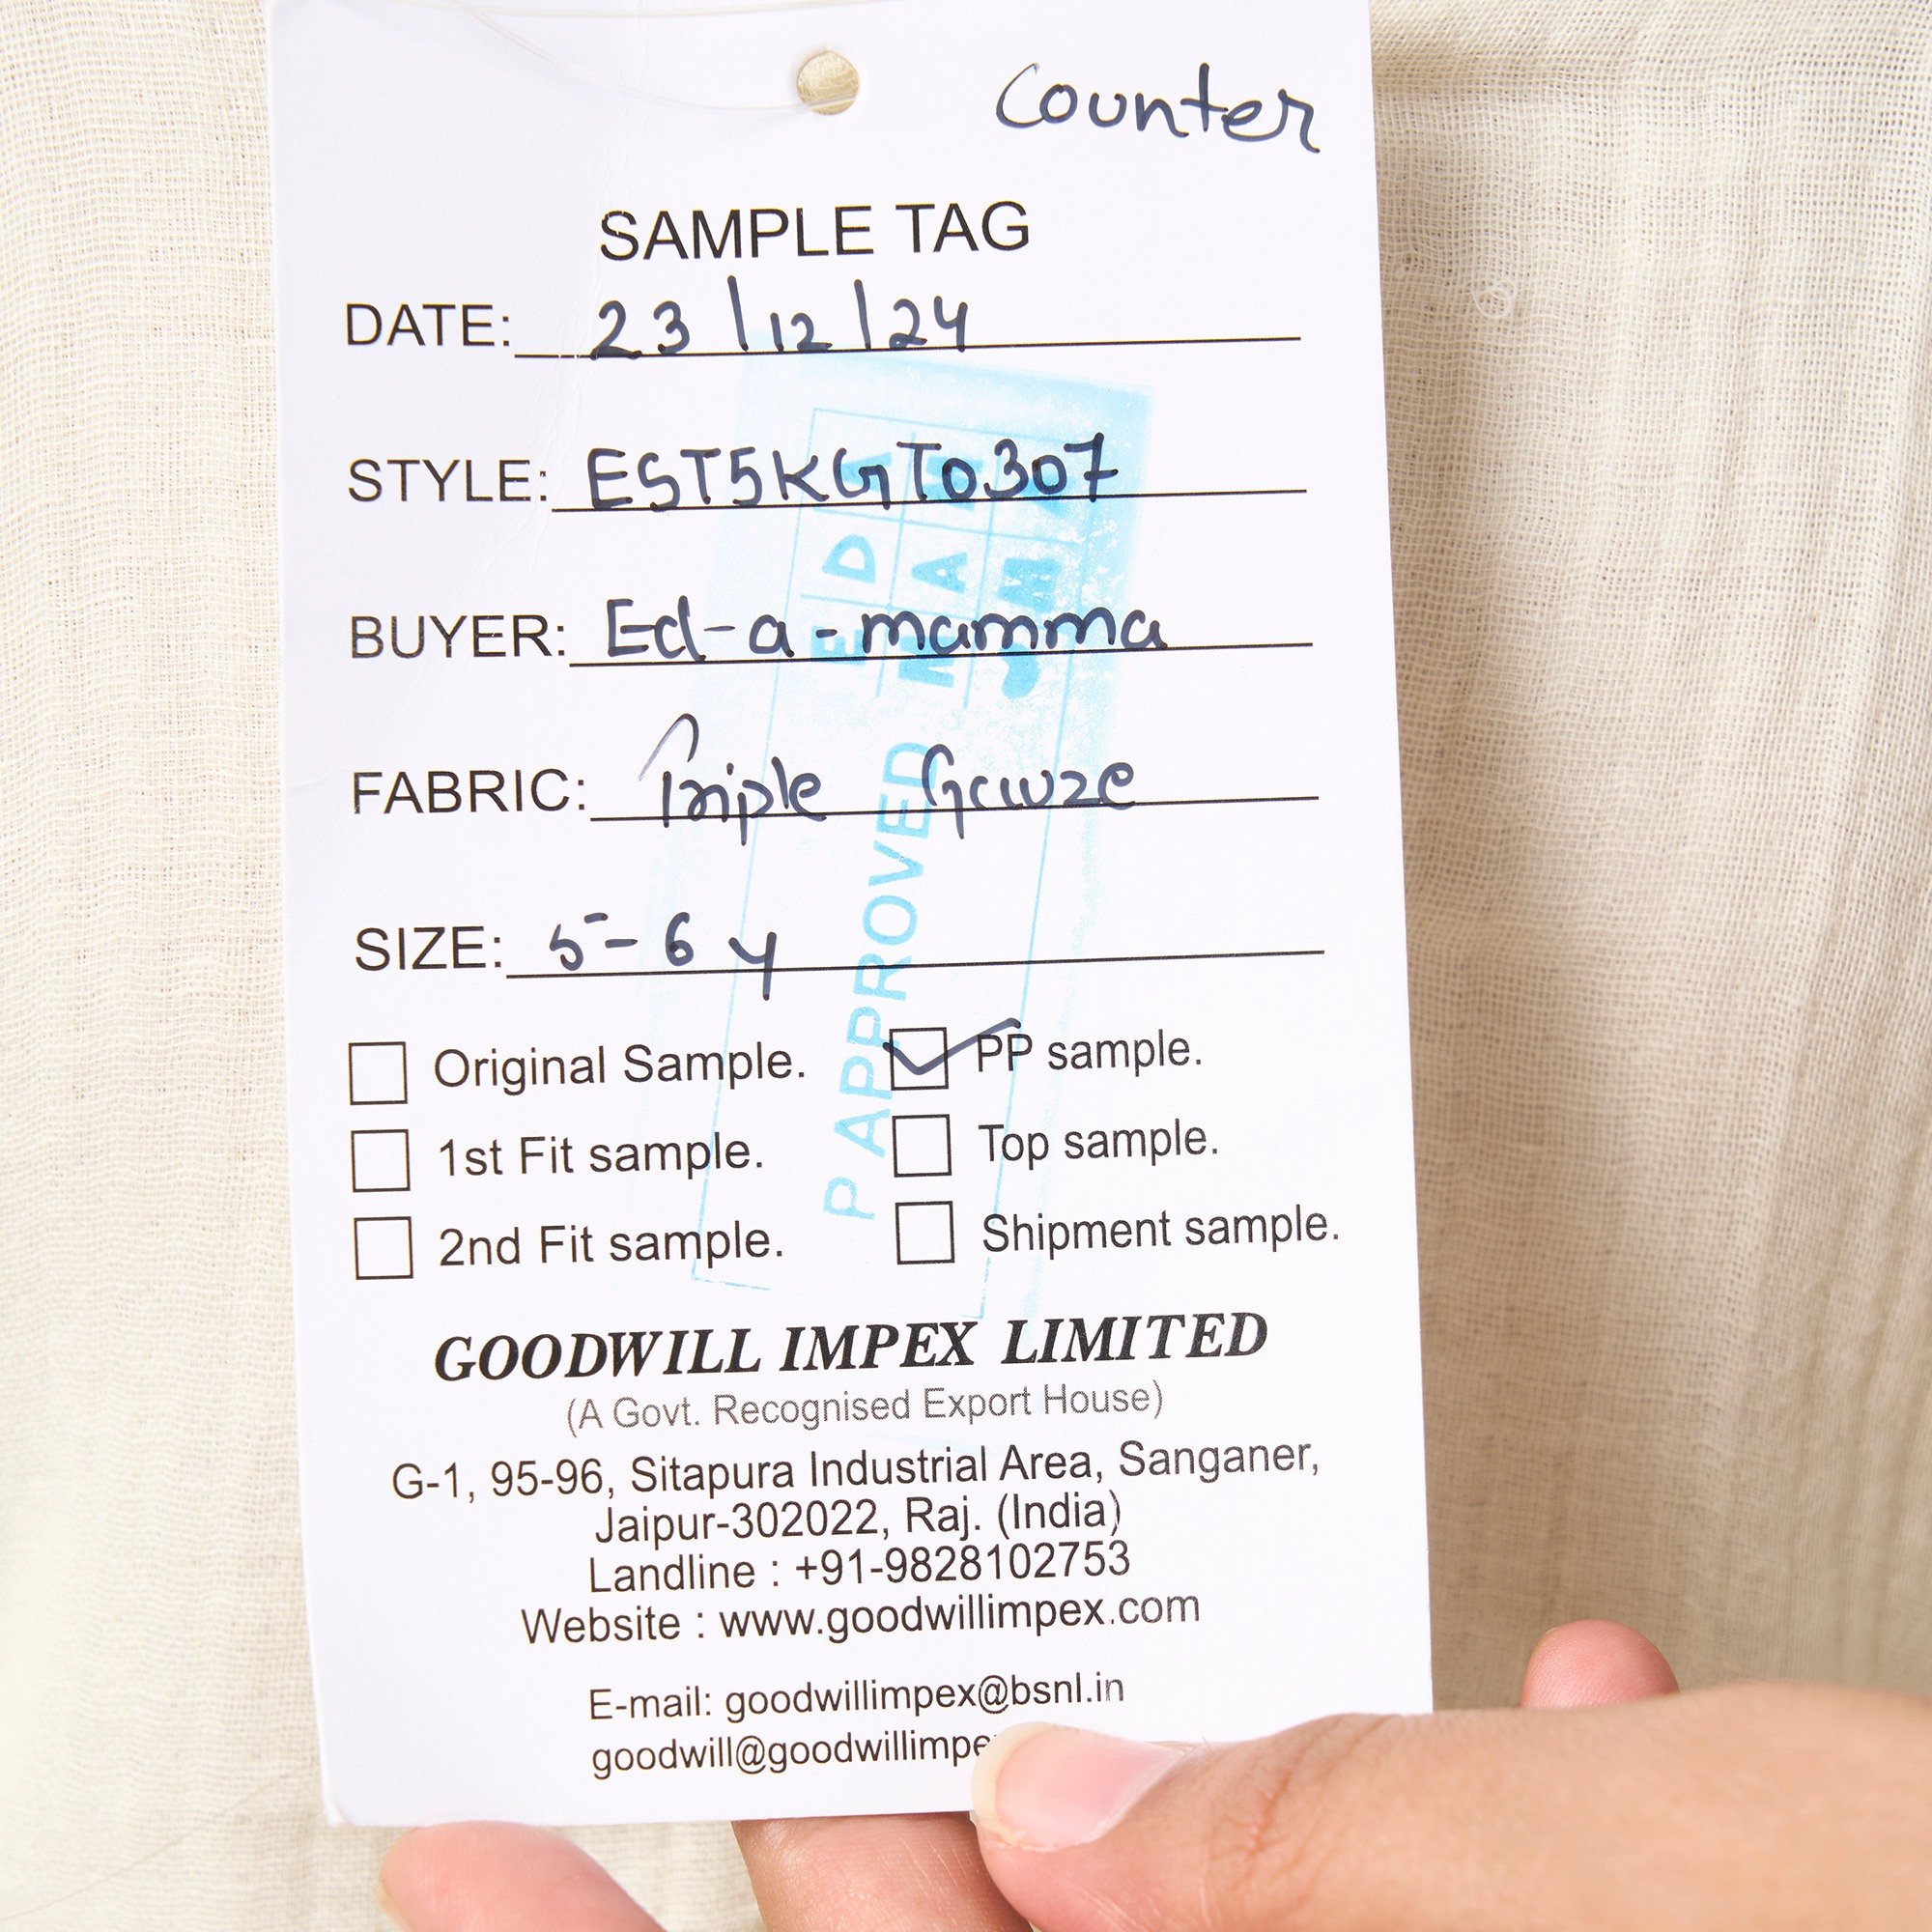 Counter
SAMPLE TAG
DATE: 23/12/24
STYLE: EST5KGT0307
BUYER: Ed-a-mamma
FABRIC: Triple Gauze
SIZE: 5-6 y
Original Sample. PP sample.
1st Fit sample. Top sample.
2nd Fit sample. Shipment sample.
P APPROVED
GOODWILL IMPEX LIMITED
(A Govt. Recognised Export House)
G-1, 95-96, Sitapura Industrial Area, Sanganer,
Jaipur-302022, Raj. (India)
Landline : +91-9828102753
Website : www.goodwillimpex.com
E-mail: goodwillimpex@bsnl.in
goodwill@goodwillimpe